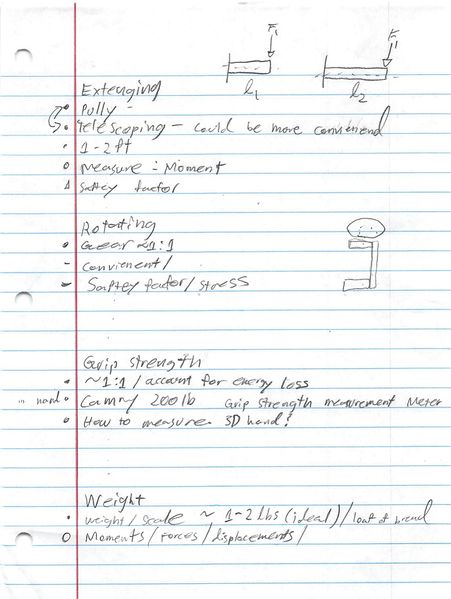 F1 F1
l1 l2
Extenging
Pully -
Telescoping - could be more convinend
1-2 ft
Measure : Moment
Saftey factor
Rotating
Gear ~1:1
Convienent/
Saftey factor/ stress
Grip strength
~1:1 / account for energy loss
hand Cammy 200lb Grip strength measurement Meter
How to measure 3D hand?
Weight
weight/ scale ~ 1-2 lbs (ideal) / loaf of bread
Moments/ Forces/ displacements/